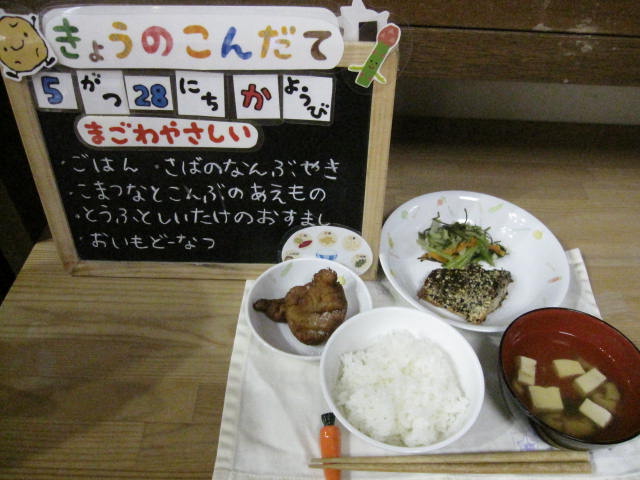 きょうのこんだて
5 がつ 28 にち か ようび
まごわやさしい
・ごはん ・さばのなんぶやき
・こまつなとこんぶのあえもの
・とうふとしいたけのおすまし
・おいもどーなつ